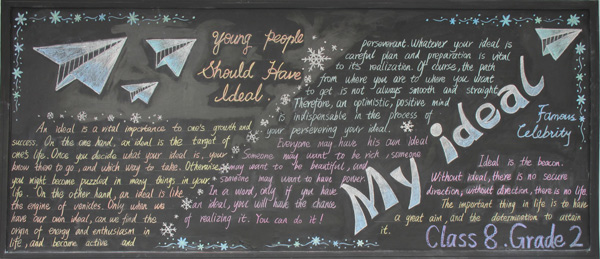 Young People
Should Have
Ideal
An ideal is a vital importance to one's growth and
success. On the one hand, an ideal is the target of
one's life. Once you decide what your ideal is, your
know there to go, and which way to take. Otherwise
you might become puzzled in many things in your
life. On the other hand, an ideal is like
the engine of vehicles. Only when we
have our own ideal, can we find the
origin of energy and enthusiasm in
life, and become active and
perseverant. Whatever your ideal is
careful plan and preparation is vital
to its realization. Of course, the path
from where you are to where you want
to get is not always smooth and straight.
Therefore, an optimistic, positive mind
is indispensable in the process of
your persevering your ideal.
Everyone may have his own ideal
Someone may want to be rich, someone
may want to be beautiful, and
someone may want to have power.
In a word, only if you have
an ideal, you will have the chance
of realizing it. You can do it!
My ideal
Famous
Celebrity
Ideal is the beacon.
Without ideal, there is no secure
direction, without direction, there is no life.
The important thing in life is to have
a great aim, and the determination to attain
it.
Class 8. Grade 2